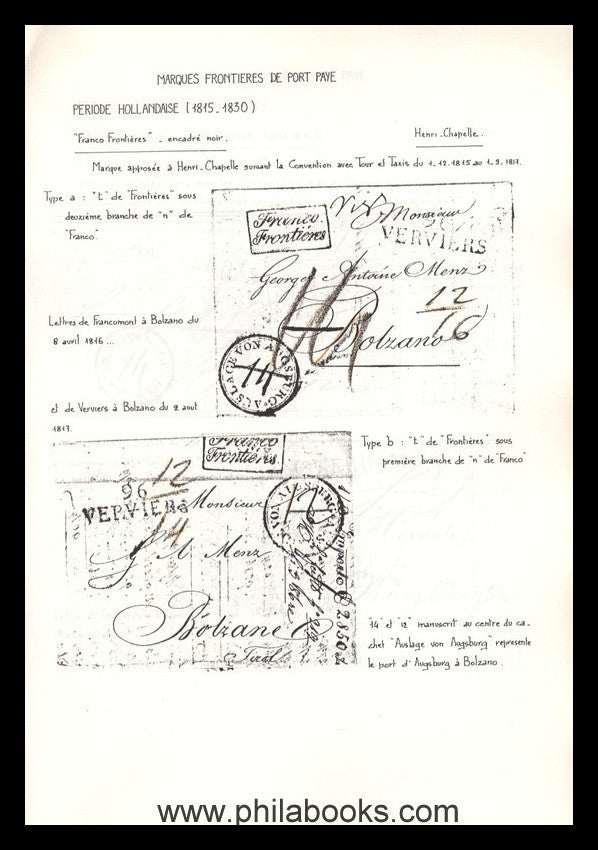 MARQUES FRONTIERES DE PORT PAYE
PERIODE HOLLANDAISE (1815-1830)
"Franco Frontières" - encadré noir.
Henri-Chapelle.
Marque apposée à Henri-Chapelle suivant la Convention avec Tour et Taxis du 1-12-1815 au 1-9-1817.
Type a : "t" de "Frontières" sous
deuxième branche de "n" de
"Franco"
Franco
Frontières
Monsieur
VERVIERS
George Antoine Menz
12
16
Bolzano
AUSLAGE VON AUGSBURG
14
Lettres de Francomont à Bolzano du
8 avril 1816...
et de Verviers à Bolzano du 2 aout
1817.
Type b : "t" de "Frontières" sous
première branche de "n" de "Franco"
Franco
Frontières
12
14
96
VERVIERS
Monsieur
VON AUGSBURG
G A Menz
Bolzano
Tirol
"14 et 12" manuscrit au centre du ca-
chet "Auslage von Augsburg" represente
le port d'Augsburg à Bolzano.
www.philabooks.com